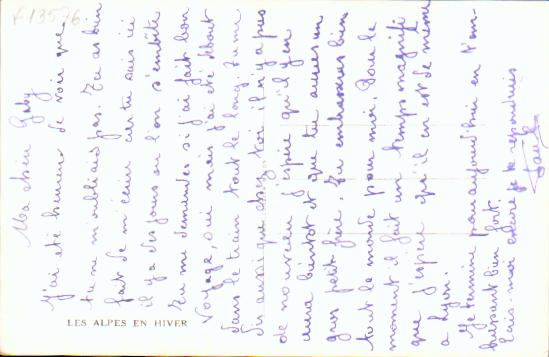 f 13576
Ma chère Gaby
J'ai été heureux de voir que
tu ne m'oubliais pas. Tu as bien
fait de m'écrire car tu sais ici
il y a des jours où l'on s'embête
Tu me demandes si j'ai fait bon
voyage, oui mais j'ai été debout
dans le train tout le long. Tu me
dis aussi que chez toi il n'y a pas
de nouveau j'espère qu'il y en
aura bientôt et que tu auras un
gros petit frère. Tu embrasseras bien
tout le monde pour moi. Pour le
moment il fait un temps magnifi
que j'espère qu'il en est de même
a Lyon.
Je termine pour aujourd'hui en t'em-
brassant bien fort.
Ecris-moi encore je te repondrais
LES ALPES EN HIVER